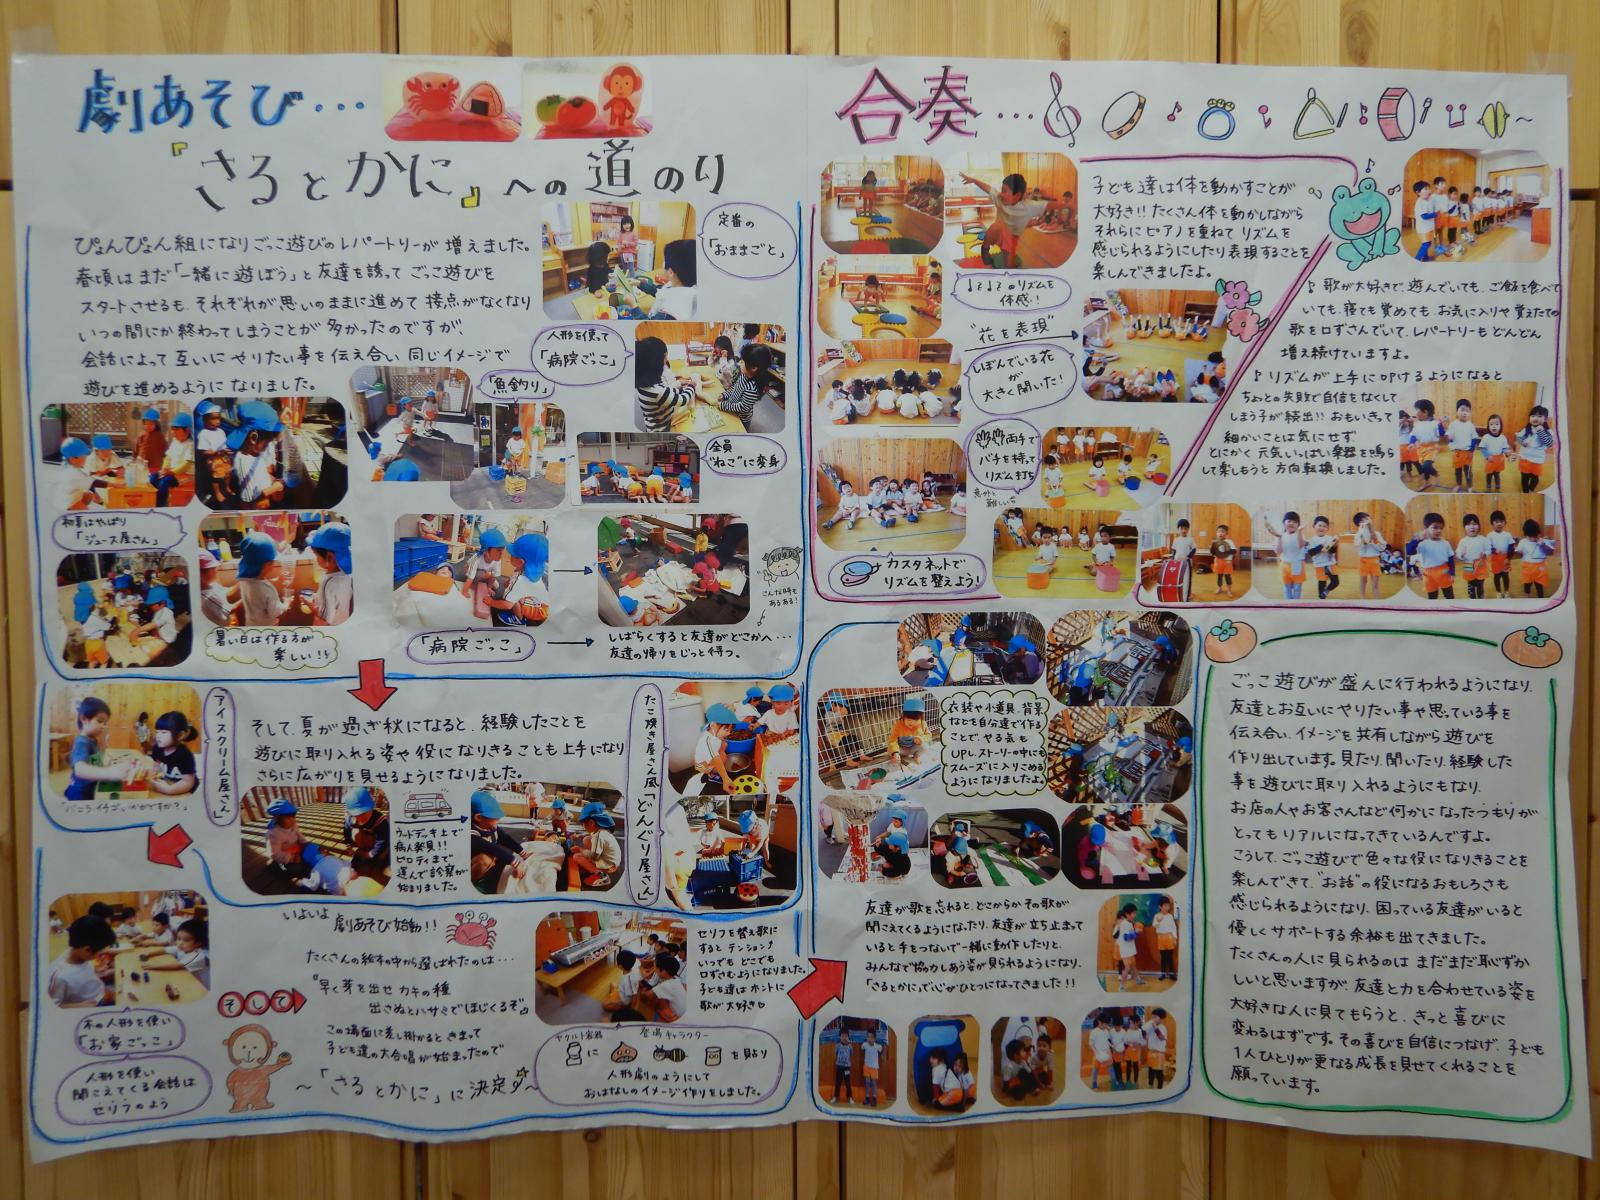 劇あそび・・・
『さるとかに』への道のり
ぴょんぴょん組になりごっこ遊びのレパートリーが増えました。
春頃はまだ「一緒に遊ぼう」と友達を誘ってごっこ遊びを
スタートさせるも、それぞれが思いのままに進めて接点がなくなり
いつの間にか終わってしまうことが多かったのですが、
会話によって互いにやりたい事を伝え合い同じイメージで
遊びを進めるようになりました。
定番の
「おままごと」
人形を使って
「病院ごっこ」
「魚釣り」
全員
"ねこ"に変身
初夏はやっぱり
「ジュース屋さん」
暑い日は作る方が
楽しい!!
「病院ごっこ」
しばらくすると友達がどこかへ・・・
友達の帰りをじっと待つ。
こんな時も
あるある!
アイスクリーム屋さん
"バニラ イチゴ、いかがですか?"
そして、夏が過ぎ秋になると、経験したことを
遊びに取り入れる姿や役になりきることも上手になり
さらに広がりを見せるようになりました。
ウッドデッキ上で
病人発見!!
ピロティまで
運んで診察が
始まりました。
たこ焼き屋さん風「どんぐり屋さん」
木の人形を使い
「お家ごっこ」
人形を使い
聞こえてくる会話は
セリフのよう
そして
いよいよ
劇あそび始動!!
たくさんの絵本の中から選ばれたのは・・・
『早く芽を出せ カキの種
出さぬとハサミでほじくるぞ』
この場面に差し掛かると きまって
子ども達の大合唱が始まったので
～「さるとかに」に決定～
セリフを替え歌に
するとテンション♪
いつでも どこでも
口ずさむようになりました。
子ども達はホントに
歌が大好き♡
ヤクルト容器
登場キャラクター
に
を貼り
人形劇のようにして
おはなしのイメージ作りをしました。
合奏・・・
子ども達は体を動かすことが
大好き!! たくさん体を動かしながら
それらにピアノを重ねてリズムを
感じられるようにしたり表現することを
楽しんできましたよ。
のリズムを
体感!!
"花を表現"
しぼんでいる花
が
大きく開いた!
両手で
バチを持って
リズム打ち
意外と
難しい
カスタネットで
リズムを整えよう!
♪歌が大好きで、遊んでいても、ご飯を食べて
いても、寝ても覚めても、お気に入りや覚えたての
歌を口ずさんでいて、レパートリーもどんどん
増え続けていますよ。
♪リズムが上手に叩けるようになると
ちょっとの失敗で自信をなくして
しまう子が続出!! おもいきって
細かいことは気にせず
とにかく元気いっぱい楽器を鳴ら
して楽しもうと方向転換しました。
衣装や小道具、背景
などを自分達で作る
ことで、やる気も
UPし、ストーリーの中にも
スムーズに入りこめる
ようになりましたよ。
友達が歌を忘れると、どこからかその歌が
聞こえてくるようになったり、友達が立ち止まって
いると手をつないで一緒に動作したりと、
みんなで協力しあう姿が見られるようになり、
「さるとかに」で心がひとつになってきました!!
ごっこ遊びが盛んに行われるようになり、
友達とお互いにやりたい事や思っている事を
伝え合い、イメージを共有しながら遊びを
作り出しています。見たり、聞いたり、経験した
事を遊びに取り入れるようにもなり、
お店の人やお客さんなど何かになったつもりが
とってもリアルになってきているんですよ。
こうして、ごっこ遊びで色々な役になりきることを
楽しんできて、"お話"の役になるおもしろさも
感じられるようになり、困っている友達がいると
優しくサポートする余裕も出てきました。
たくさんの人に見られるのは まだまだ恥ずか
しいと思いますが、友達と力を合わせている姿を
大好きな人に見てもらうと、きっと喜びに
変わるはずです。その喜びを自信につなげ、子ども
1人ひとりが更なる成長を見せてくれることを
願っています。